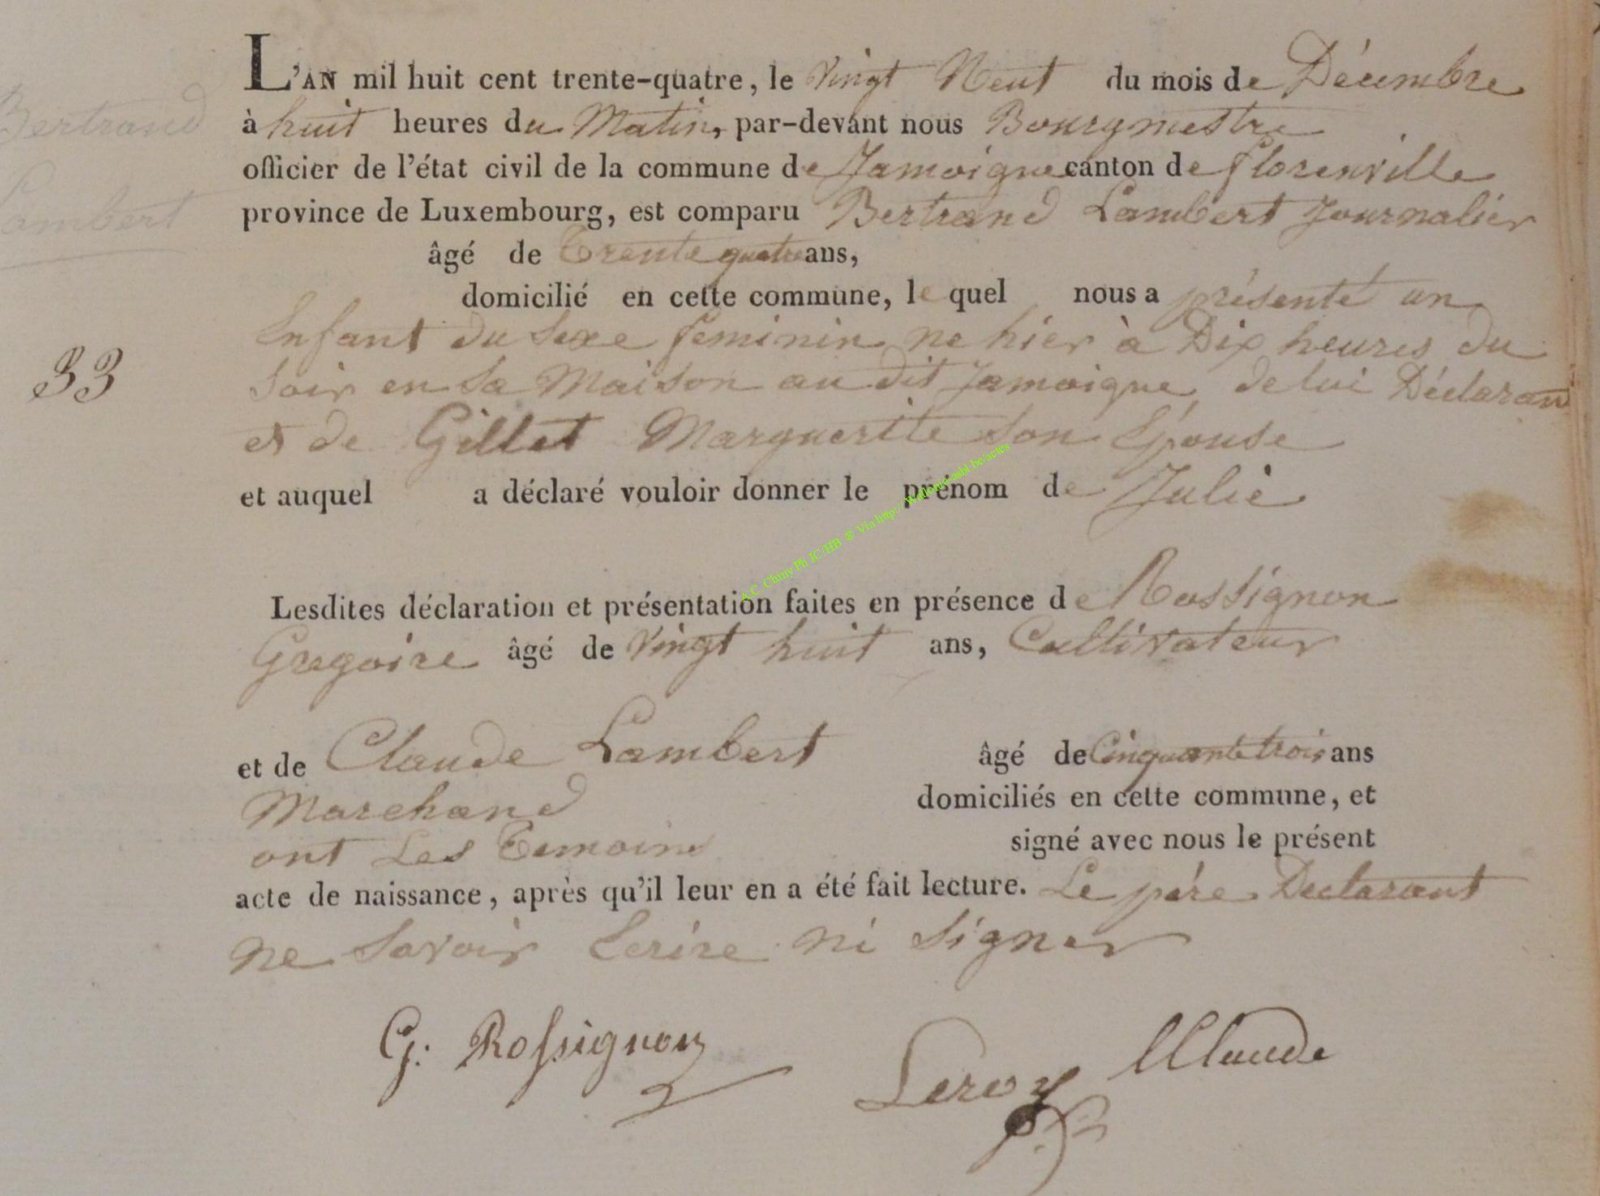 Bertrand
Lambert
33
L'AN mil huit cent trente-quatre, le Vingt Neuf du mois de Décembre
à huit heures du Matin, par-devant nous Bourgmestre
officier de l'état civil de la commune de Jamoigne canton de florenville
province de Luxembourg, est comparu Bertrand Lambert Journalier
âgé de Trente quatre ans,
domicilié en cette commune, le quel nous a présenté un
Enfant du Sexe feminin ne hier à Dix heures du
Soir en Sa Maison au dit Jamoigne de lui Déclarant
et de Gillet Marguerite Son Epouse
et auquel a déclaré vouloir donner le prénom de Julie
Lesdites déclaration et présentation faites en présence de Rossignon
Gregoire âgé de Vingt huit ans, Cultivateur
et de Claude Lambert âgé de Cinquante trois ans
Marchand domiciliés en cette commune, et
ont Les Temoins signé avec nous le présent
acte de naissance, après qu'il leur en a été fait lecture. Le père Declarant
ne Savoir Ecrire ni Signer
G. Rossignon Leroy LClaude
A.C. Chiny Ph JC/HB @ Via